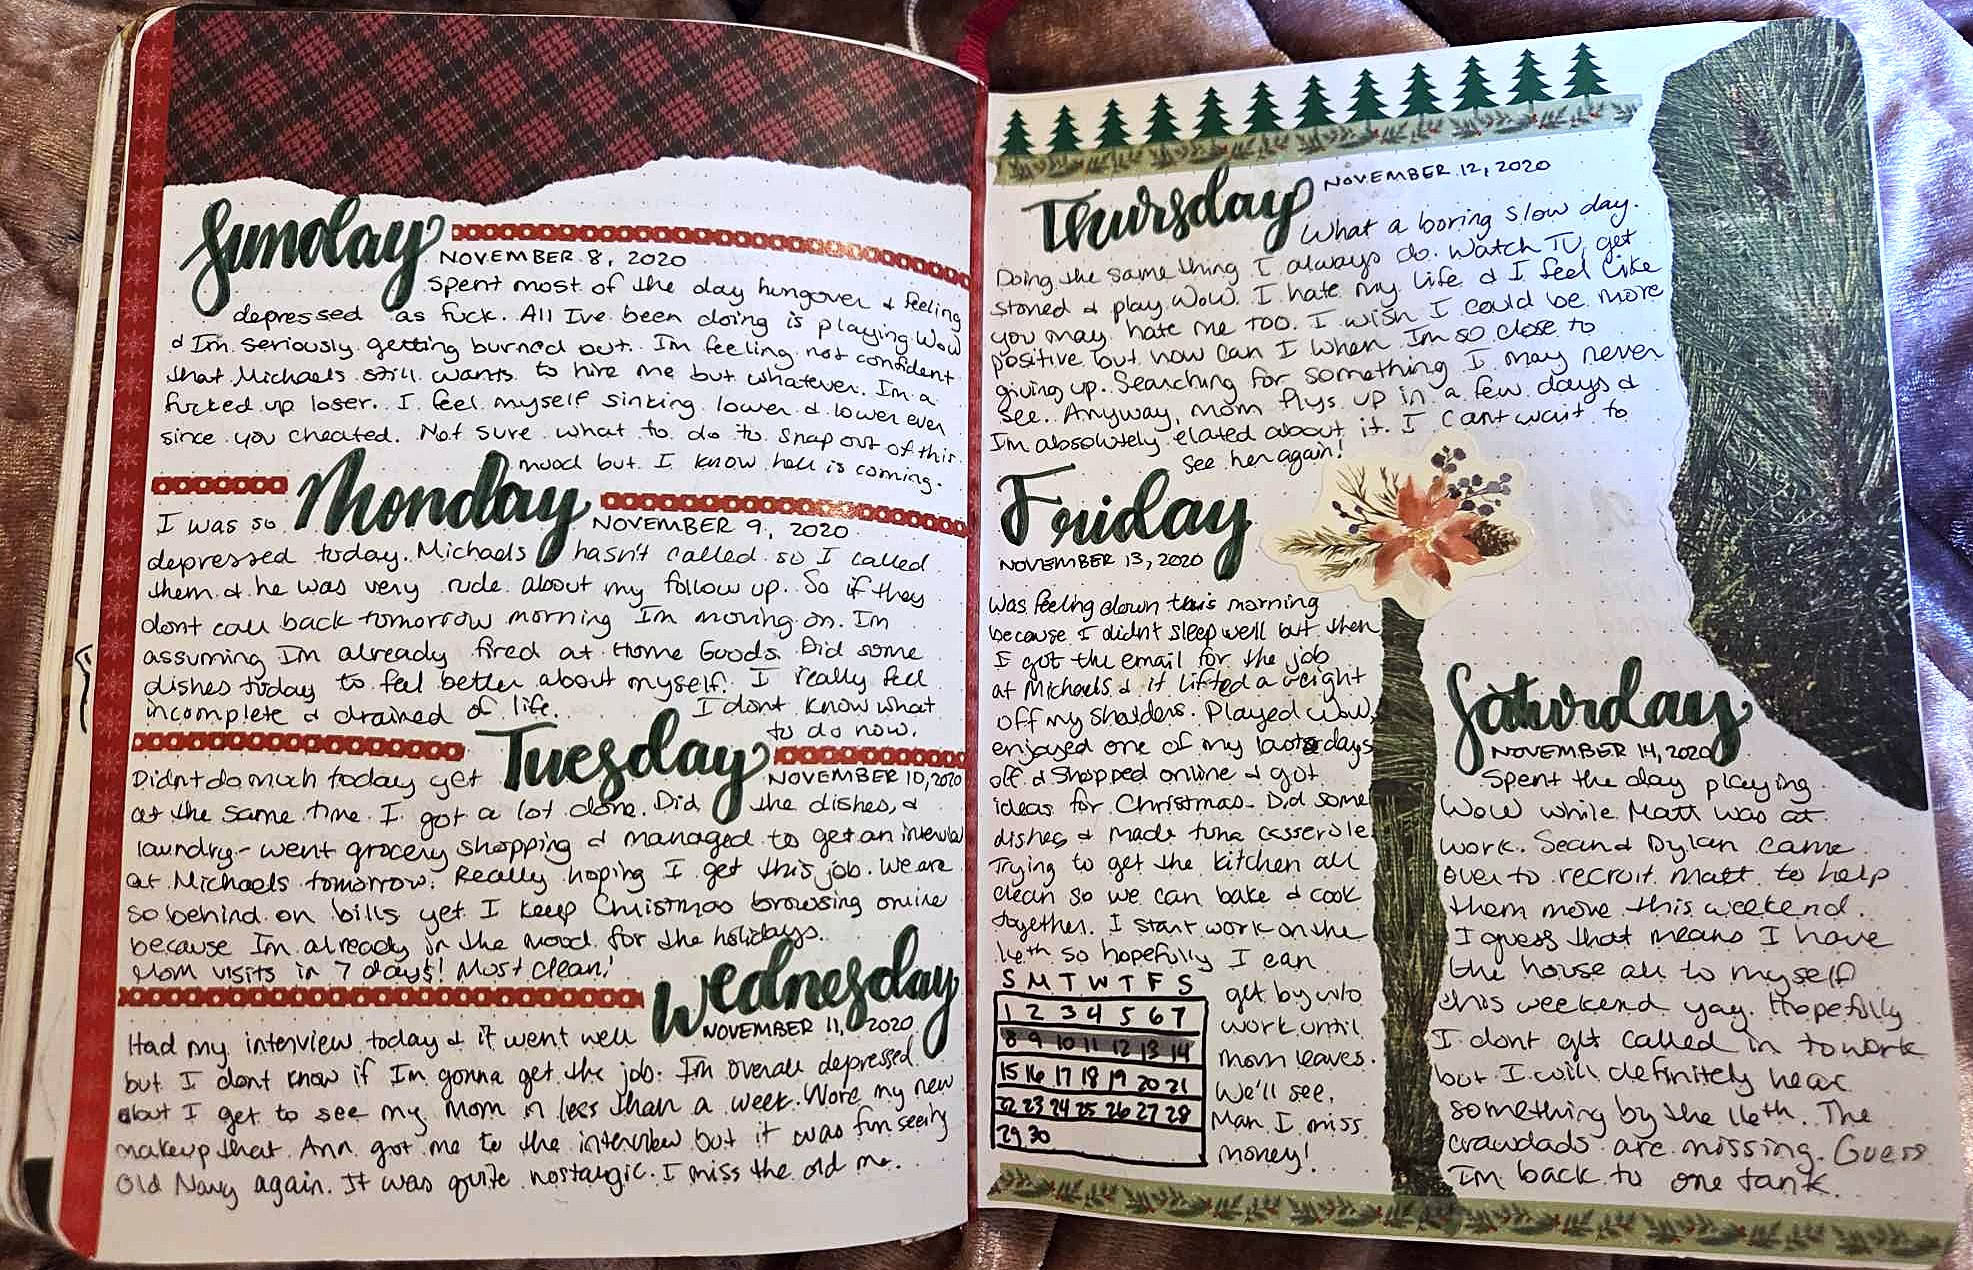 Sunday
NOVEMBER 8, 2020
Spent most of the day hungover & feeling
depressed as fuck. All Ive been doing is playing WoW
& Im seriously getting burned out. Im feeling not confident
that Michaels still wants to hire me but whatever. Im a
fucked up loser. I feel myself sinking lower & lower ever
since you cheated. Not sure what to do to snap out of this
mood but I know hell is coming.
Monday
NOVEMBER 9, 2020
I was so
depressed today. Michaels hasn't called so I called
them & he was very rude about my follow up. So if they
dont call back tomorrow morning Im moving on. Im
assuming Im already fired at Home Goods. Did some
dishes today to feel better about myself. I really feel
incomplete & drained of life. I dont know what
to do now.
Tuesday
NOVEMBER 10, 2020
Didnt do much today yet
at the same time I got a lot done. Did the dishes, &
laundry- went grocery shopping & managed to get an interview
at Michaels tomorrow. Really hoping I get this job. We are
so behind on bills yet I keep Christmas browsing online
because Im already in the mood for the holidays.
Mom visits in 7 days! Must clean!
Wednesday
NOVEMBER 11, 2020
Had my interview today & it went well
but I dont know if Im gonna get the job. Im overall depressed
but I get to see my mom in less than a week. Wore my new
makeup that Ann got me to the interview but it was fun seeing
Old Navy again. It was quite nostalgic. I miss the old me.
Thursday
NOVEMBER 12, 2020
What a boring slow day.
Doing the same thing I always do. Watch TV, get
stoned & play WoW. I hate my life & I feel like
you may hate me too. I wish I could be more
positive but how can I when Im so close to
giving up. Searching for something I may never
see. Anyway, mom flys up in a few days &
I'm absolutely elated about it. I cant wait to
see her again!
Friday
NOVEMBER 13, 2020
Was feeling down this morning
because I didnt sleep well but then
I got the email for the job
at Michaels & it lifted a weight
off my sholders. Played WoW,
enjoyed one of my last days
off & shopped online & got
ideas for Christmas. Did some
dishes & made tuna casserole.
Trying to get the kitchen all
clean so we can bake & cook
together. I start work on the
16th so hopefully I can
get by w/o
work until
mom leaves.
We'll see,
Man I miss
money!
S M T W T F S
1 2 3 4 5 6 7
8 9 10 11 12 13 14
15 16 17 18 19 20 21
22 23 24 25 26 27 28
29 30
Saturday
NOVEMBER 14, 2020
Spent the day playing
WoW while Matt was at
work. Sean & Dylan came
over to recruit Matt to help
them move this weekend.
I guess that means I have
the house all to myself
this weekend yay. Hopefully
I dont get called in to work
but I will definitely hear
something by the 16th. The
crawdads are missing. Guess
Im back to one tank.